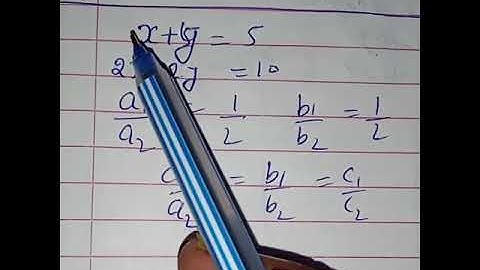 x+1y = 5
2 2y = 10
a₁/a₂ = 1/2 b₁/b₂ = 1/2
a₂ = b₁/b₂ = c₁/c₂